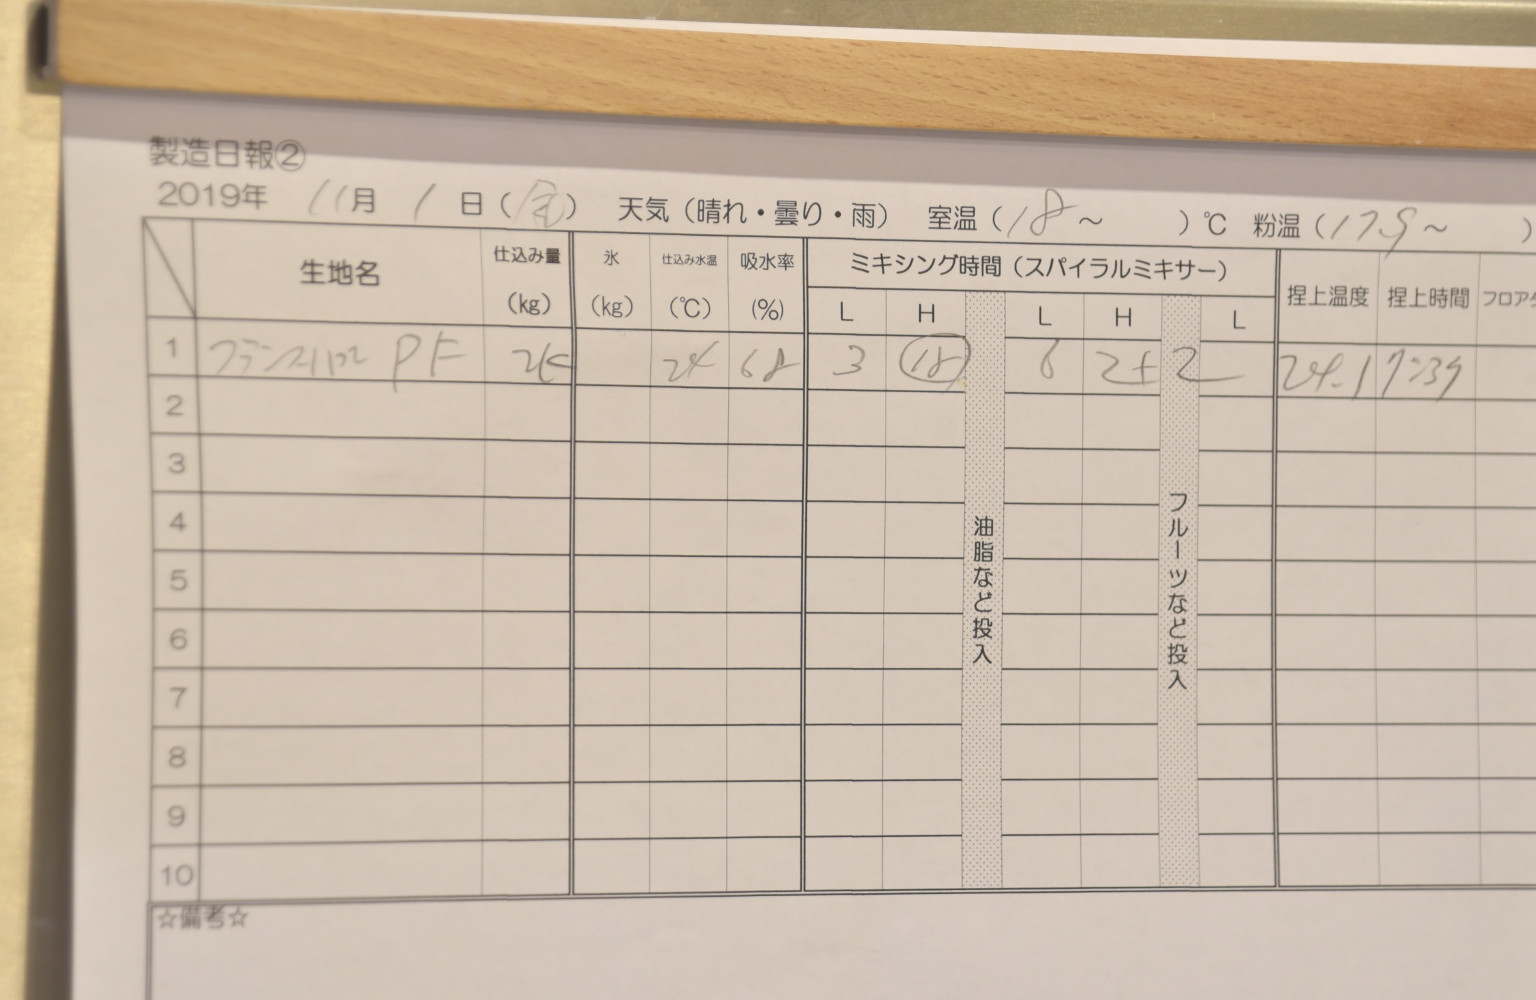 製造日報②
2019年 11月 1日（金） 天気（晴れ・曇り・雨） 室温（18～ ）℃ 粉温（17.9～ ）
生地名 仕込み量（kg） 氷（kg） 仕込み水温（℃） 吸水率（%） ミキシング時間（スパイラルミキサー） 捏上温度 捏上時間 フロア
L H L H L
1 フランスパン PF 24 68 3 18 6 2 24.1 7:39
2
3
4
5
6
7
8
9
10
油脂など投入
フルーツなど投入
☆備考☆